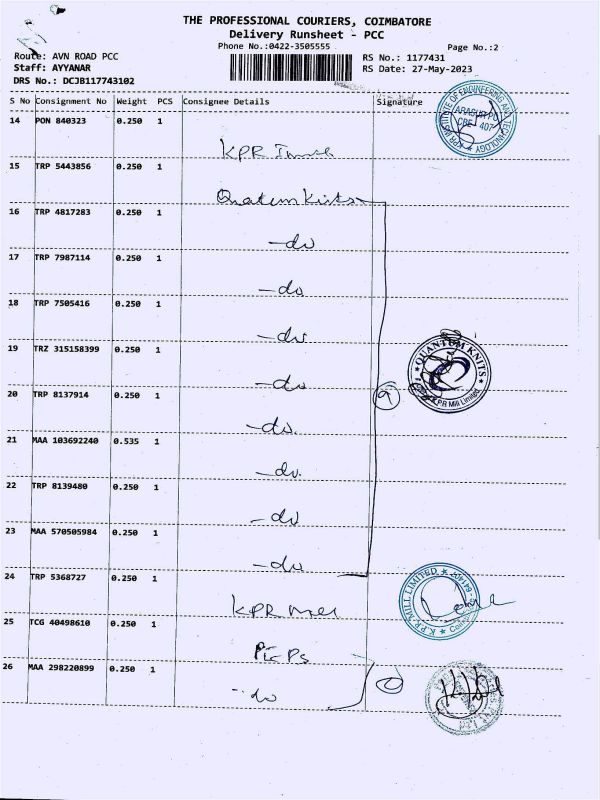 THE PROFESSIONAL COURIERS, COIMBATORE
Delivery Runsheet - PCC
Phone No.:0422-3505555
Page No.:2
Route: AVN ROAD PCC
RS No.: 1177431
Staff: AYYANAR
RS Date: 27-May-2023
DRS No.: DCJB117743102
S No Consignment No Weight PCS Consignee Details Signature
14 PON 840323 0.250 1
KPR
KPR INSTITUTE OF ENGINEERING AND TECHNOLOGY
CBE 407
15 TRP 5443856 0.250 1
Quatum Knits
16 TRP 4817283 0.250 1
-do
17 TRP 7987114 0.250 1
-do
18 TRP 7505416 0.250 1
-do
19 TRZ 315158399 0.250 1
-do
QUANTUM KNITS
KPR Mill Limited
20 TRP 8137914 0.250 1
9
-do.
21 MAA 103692240 0.535 1
-do.
22 TRP 8139480 0.250 1
-do
23 MAA 570505984 0.250 1
-do
24 TRP 5368727 0.250 1
KPR Mill
K.P.R. MILL LIMITED
25 TCG 40498610 0.250 1
26 MAA 298220899 0.250 1
-do